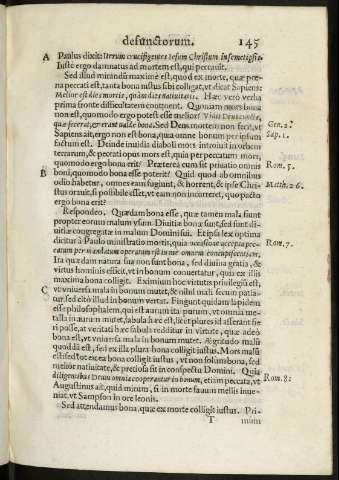 defunctorum. 145
A Paulus dixit: Iterum crucifigentes Iesum Christum in semetipsis:
Iustè ergo damnatus ad mortem est, qui peccauit.
Sed illud mirandũ maximè est, quod ex morte, quæ pœ-
na peccati est, tanta bona iustus sibi colligat, vt dicat Sapiens:
Melior est dies mortis, quàm dies natiuitatis. Hæc verò verba
prima fronte difficultatem continent. Quoniam mors bona
non est, quomodo ergo potest esse melior? Vidit Deus cuncta,
quæ fecerat, & erant valde bona. Sed Deus mortem non fecit, vt
Gen. 2.
Sapiens ait, ergo non est bona, quia omne bonum per ipsum
Sap. 1.
factum est. Deinde inuidia diaboli mors introiuit in orbem
terrarum, & peccati opus mors est, quia per peccatum mors,
quomodo ergo bona erit? Præterea cum sit priuatio omnis
Rom. 5.
B boni, quomodo bona esse poterit? Quid quod ab omnibus
odio habetur, omnes eam fugiunt, & horrent, & ipse Chri-
Matth. 26.
stus orauit, si possibile esset, vt eam non incurreret, quo pacto
ergo bona erit?
Respondeo. Quædam bona esse, quæ tamen mala sunt
propter eorum malum vsum. Diuitiæ bonæ sunt, sed diui-
tiæ congregatæ in malum Domini sui. Et ipsa lex optima
dicitur à Paulo ministratio mortis, quia occasione accepta pec-
Rom. 7.
catum per mandatum operatum est in me omnem concupiscentiam.
Ita quædam natura sua non sunt bona, sed diuina gratia, &
virtus hominis efficit, vt in bonum conuertatur, quia ex illis
maxima bona colligit. Eximium hoc virtutis priuilegiũ est,
C vt vniuersa mala in bonum mutet, & nihil mali secum patia-
tur, sed citò illud in bonum vertat. Fingunt quidam lapidem
esse philosophalem, qui est aurum ita purum, vt omnia me-
talla in aurum mutet, fabula hæc est, licèt plures id asserant fie-
ri posse, at veritati hæc fabula redditur in virtute, quæ adeò
bona est, vt vniuersa mala in bonum mutet. Ægritudo malũ
quoddã est, sed ex illa plura bona colligit iustus. Mors malũ
est, sed tot ex ea bona colligit iustus, vt non solum bona, sed
melior natiuitate, & pretiosa sit in conspectu Domini. Quia
diligentibus Deum omnia cooperantur in bonum, etiam peccata, vt
Rom. 8.
Augustinus ait, quid mirum, si in morte fauum mellis inue-
niat, vt Sampson in ore leonis.
Sed attendamus bona, quæ ex morte colligit iustus. Pri-
T mùm